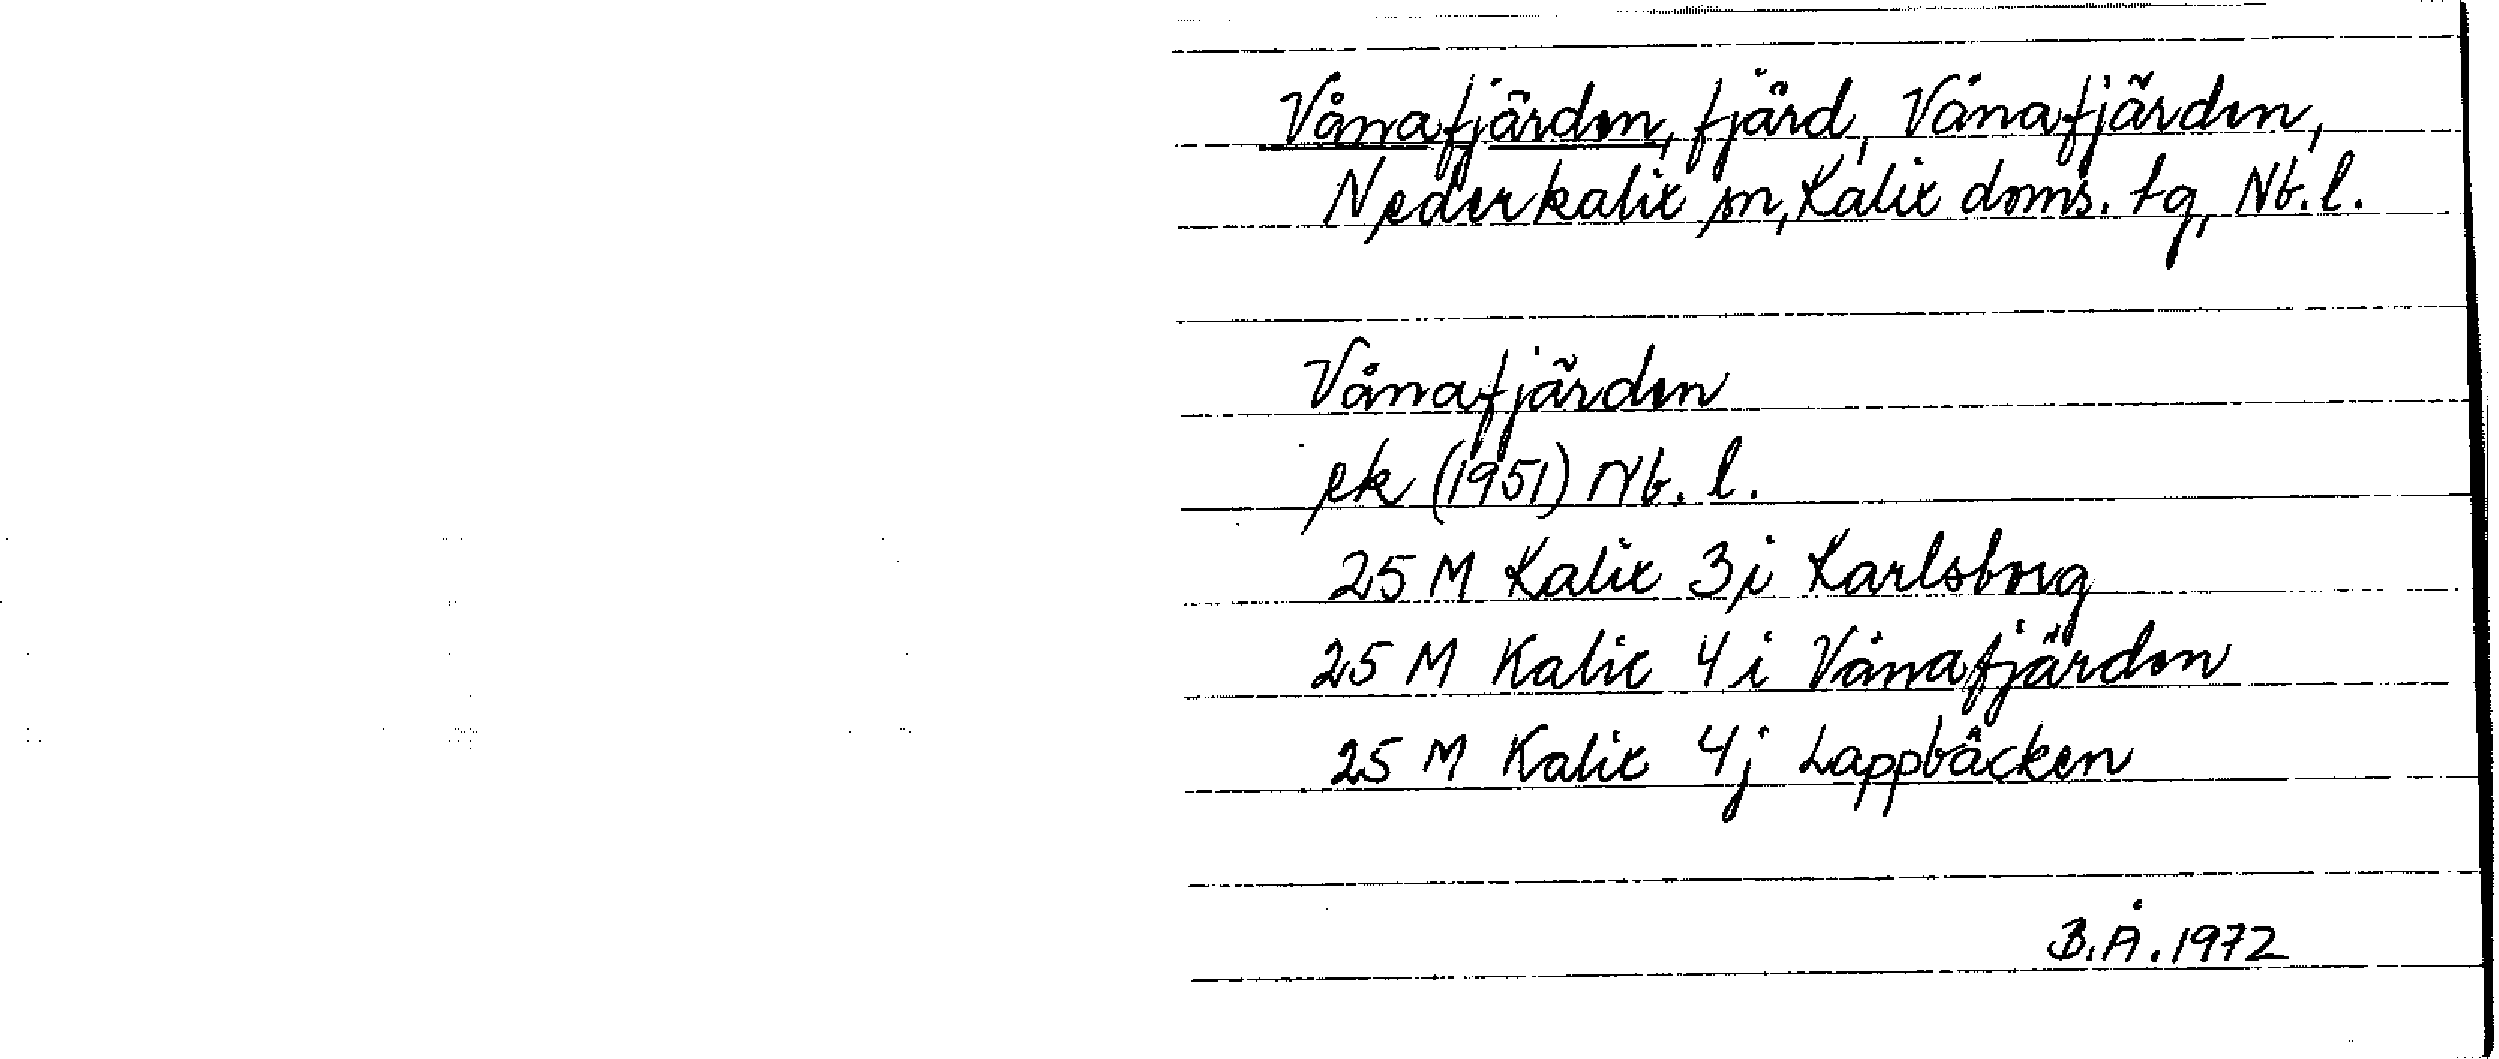 Vånafjärden, fjärd, Vånafjärden,
Nederkalix sn, Kalix doms. tg, Nb. l.
Vånafjärden
ek (1951) Nb. l.
25 M Kalix 3i Karlsborg
25 M Kalix 4i Vånafjärden
25 M Kalix 4j Lappbäcken
B.Å. 1972